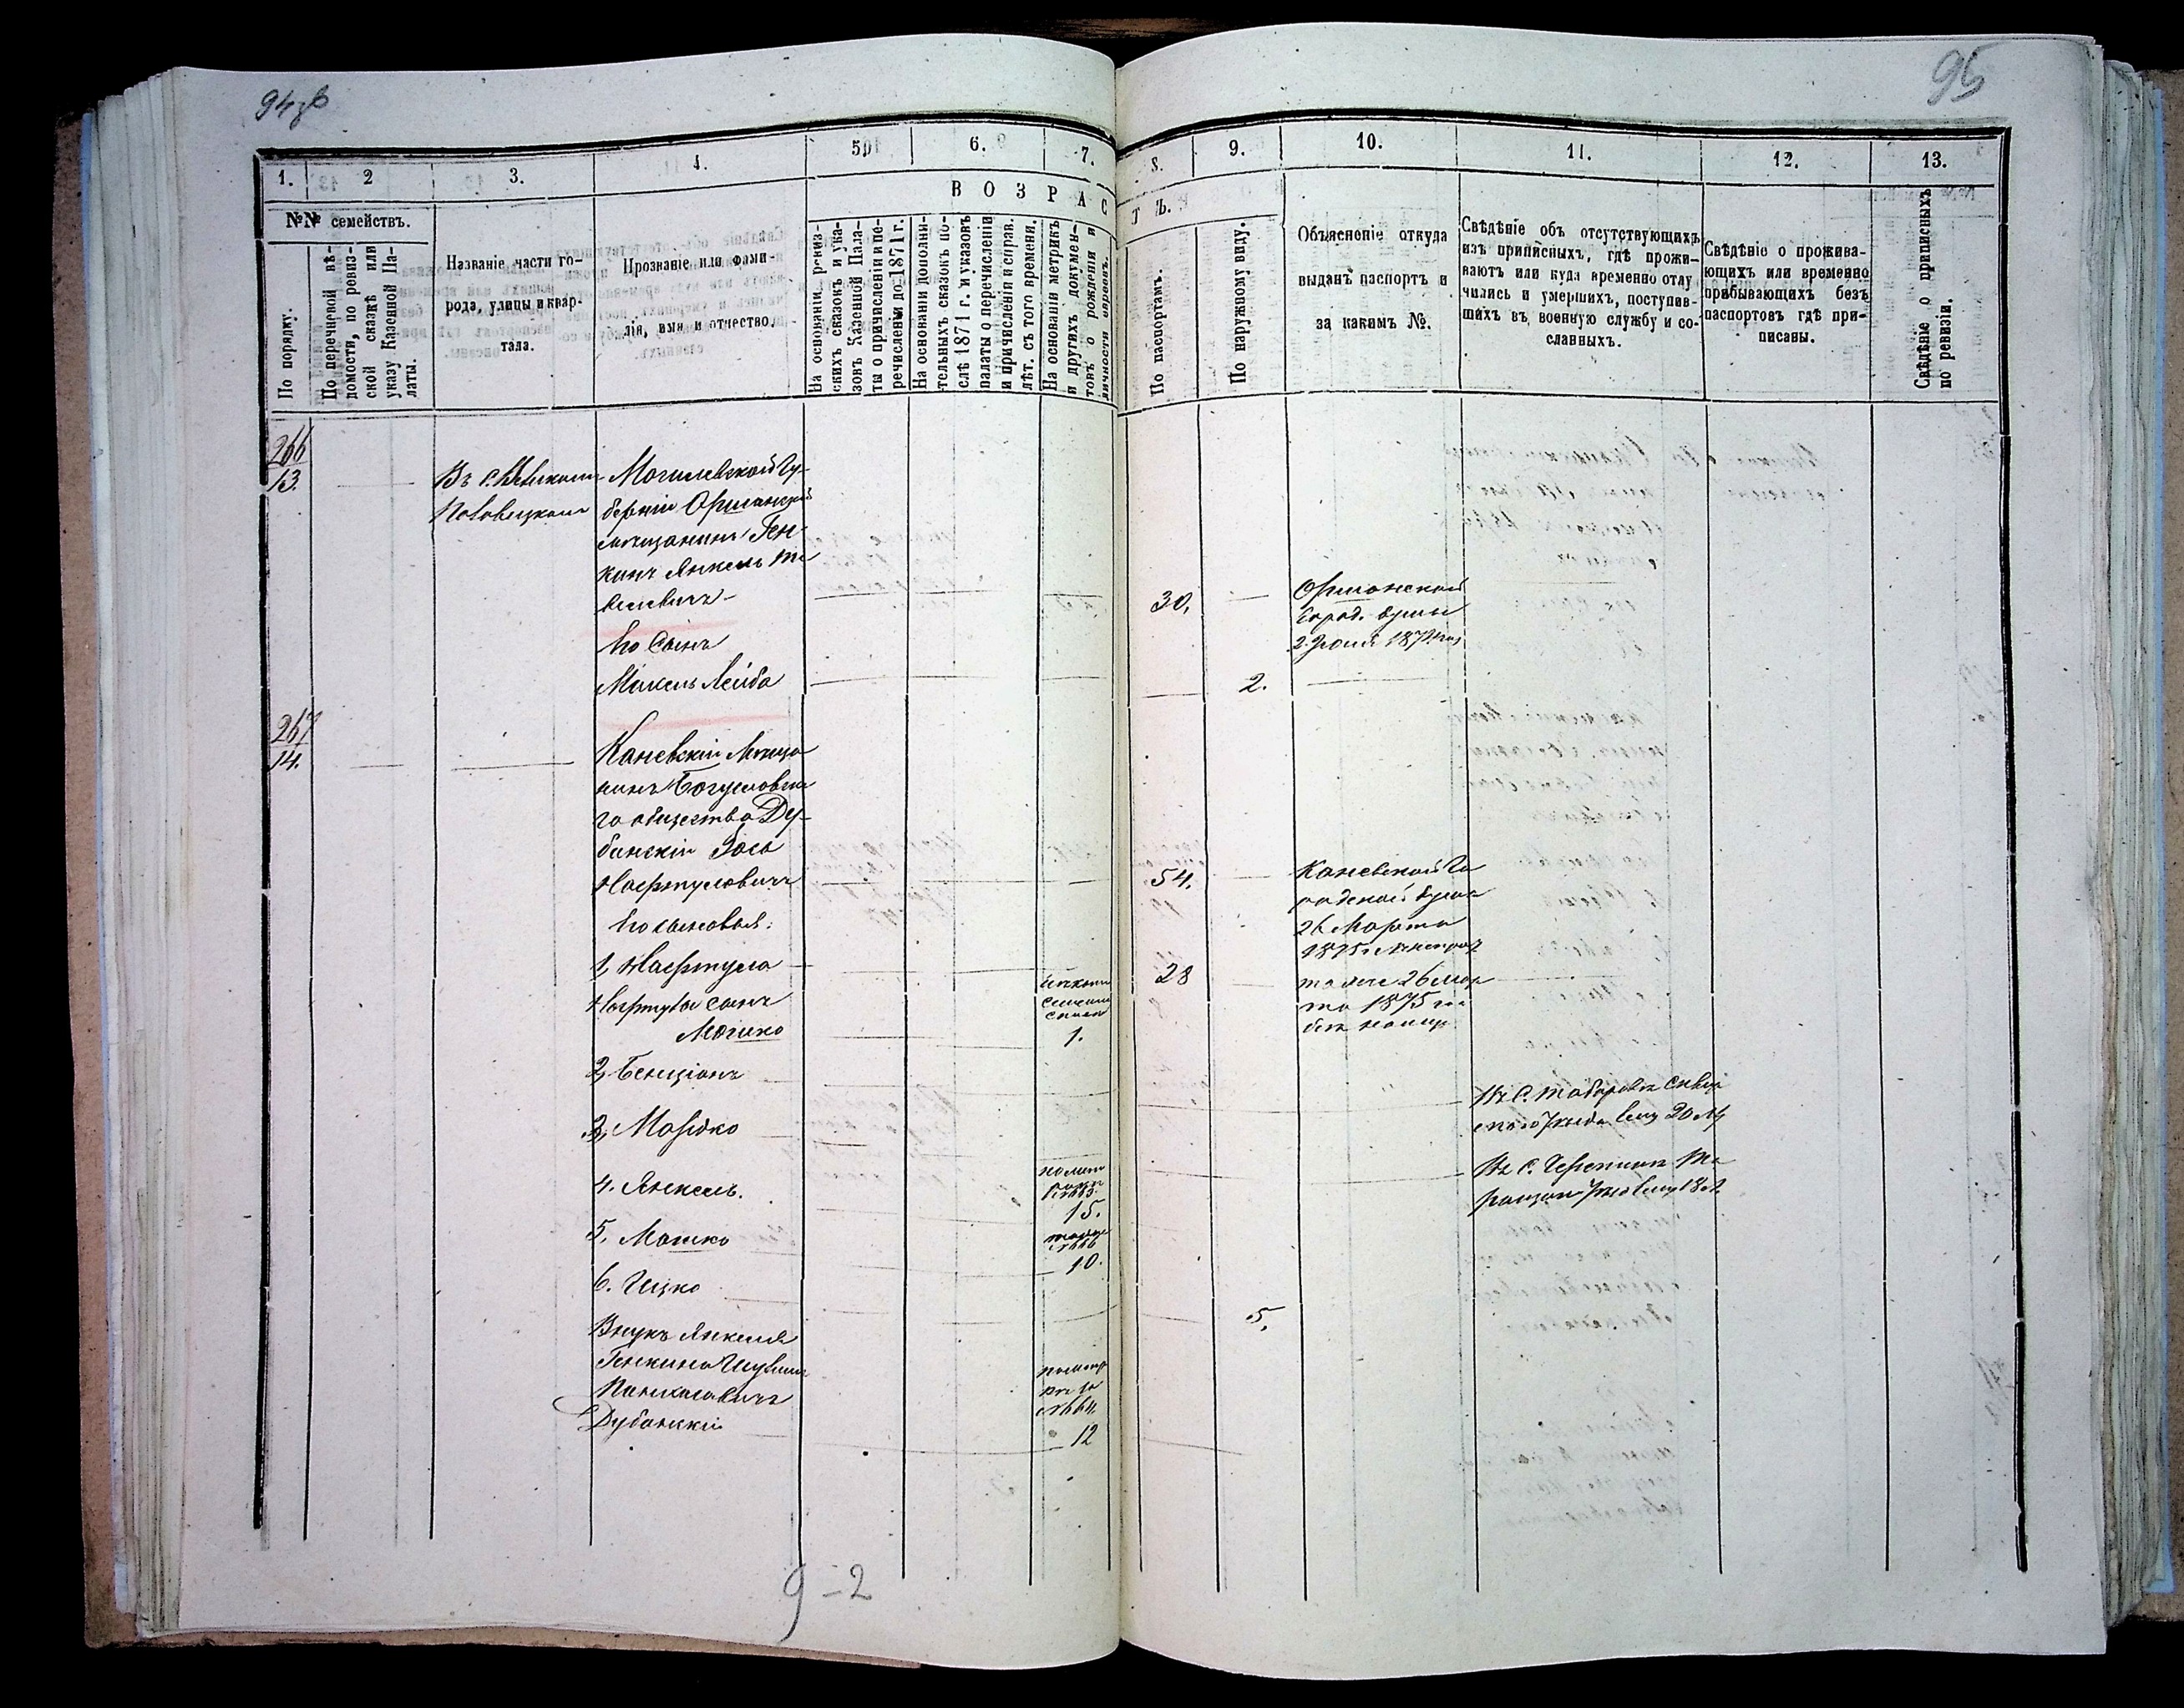 94об
95
1.
2
3.
4.
5
6.
7.
8.
9.
10.
11.
12.
13.
№№ семействъ.
В О З Р А С
Т Ъ.
По порядку.
По перечневой вѣ-
домости, по ревиз-
ской сказкѣ или
указу Казенной Па-
латы.
Названіе части го-
рода, улицы и квар-
тала.
Прозваніе или фами-
лія, имя и отчество.
На основаніи ревиз-
скихъ сказокъ и ука-
зовъ Казенной Пала-
ты о причисленіи и пе-
речисленіи до 1871 г.
На основаніи дополни-
тельныхъ сказокъ по-
слѣ 1871 г. и указовъ
палаты о перечисленіи
и причисленіи и справ.
лѣт. съ того времени.
На основаніи метрикъ
и другихъ докумен-
товъ о рожденіи и
личности евреевъ.
По паспортамъ.
По наружному виду.
Объясненіе откуда
выданъ паспортъ и
за какимъ №.
Свѣдѣніе объ отсутствующихъ
изъ приписныхъ, гдѣ прожи-
ваютъ или куда временно отлу
чились и умершихъ, поступив-
шихъ въ военную службу и со-
сланныхъ.
Свѣдѣніе о прожива-
ющихъ или временно
прибывающихъ безъ
паспортовъ гдѣ при-
писаны.
Свѣдѣніе о приписныхъ
по ревизіи.
266
13.
Въ с.
Могилевской Гу-
берніи Оршанскій
мѣщанинъ Ген-
кинъ Янкель
30.
Оршанской
Город. думы
2 1872 год
Его Сынъ
Михель Лейба
2.
267
14.
Каневскій Мѣща
нинъ Богуславска
го общества Ду-
банскій Іось
Нафтуловичъ
54.
Каневской Го
родской думы
26 Марта
1875 г.
Его сыновья:
1, Нафтула
28
тоже 26 мар
та 1875 г.
безъ номер.
Нафтулы сынъ
Мошко
1.
2, Бенціонъ
Въ С.
уѣзда ему 20 л.
3, Мордко
Въ С. Черепинѣ Та
ращан. уѣзд ему 18 л.
4. Янкель.
15.
5. Мошко
10.
6. Ицко
5.
Внукъ Янкеля
Генкина
Пинхасовичъ
Дубанскій
12
9-2